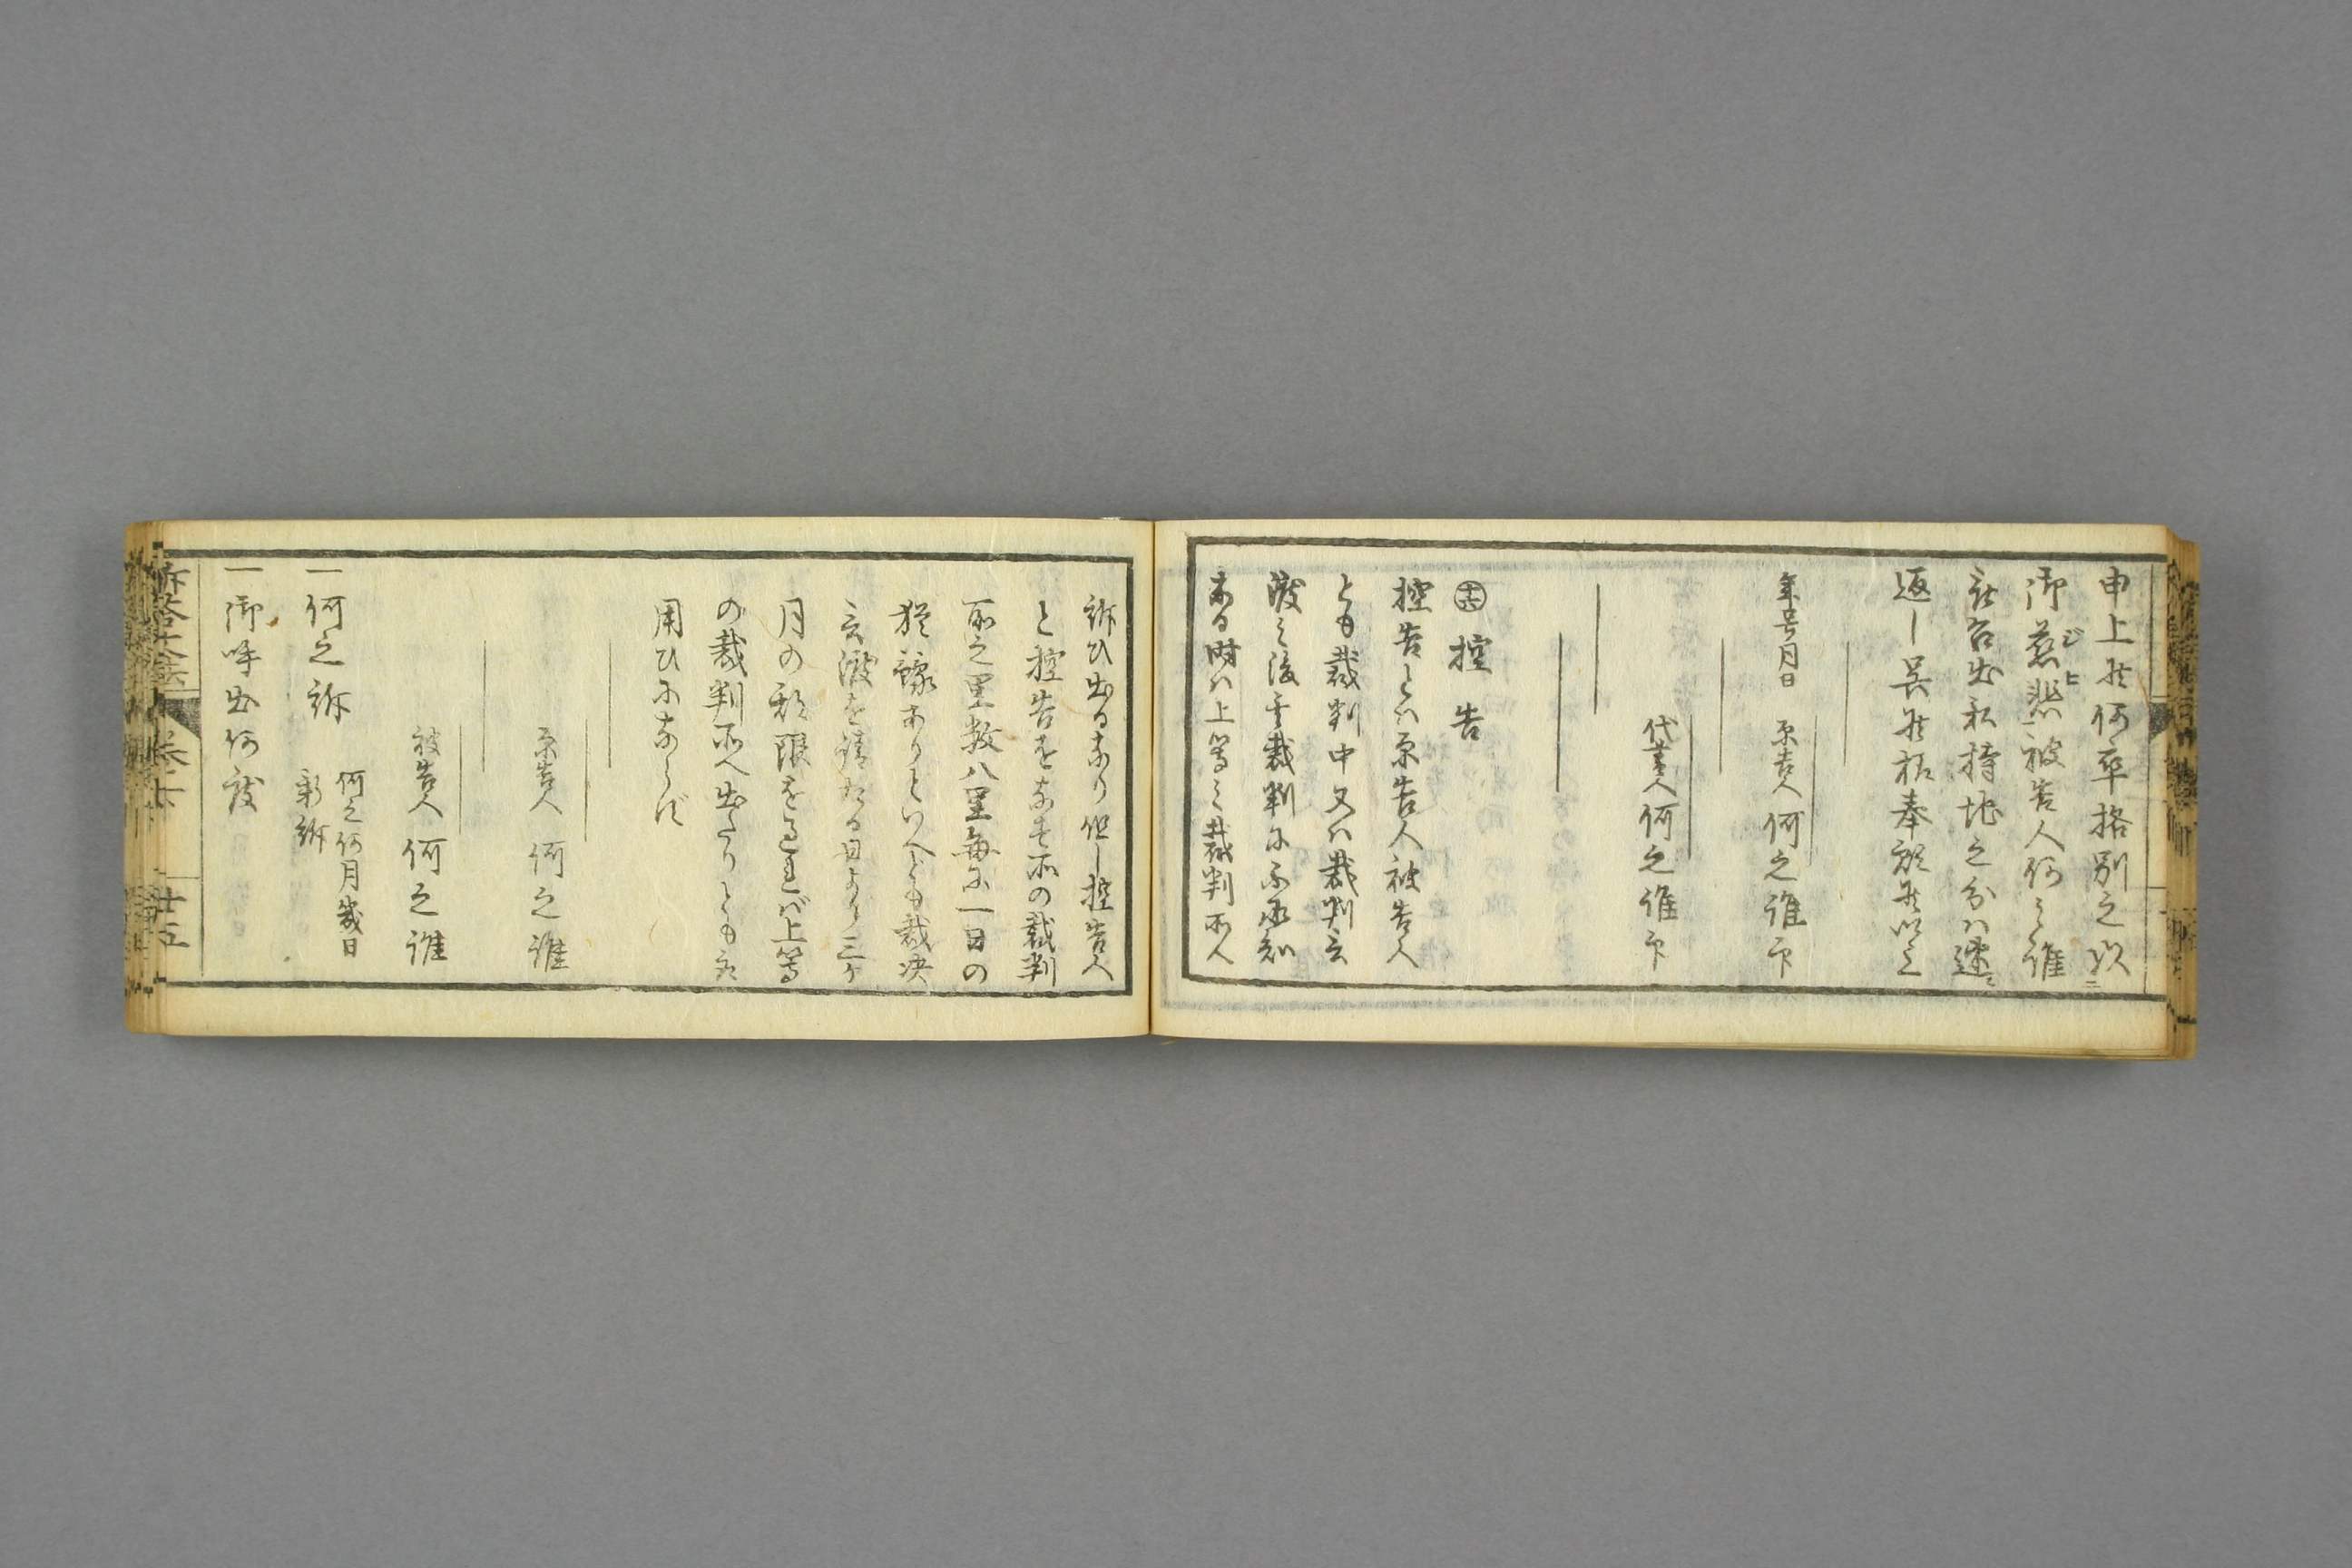 申上候何卒格別之以
御慈悲被告人何之誰
被召出私持地之分ハ速ニ
返し呉候様奉願候以上
年号月日 原告人 何之誰 印
代書人 何之誰 印
㊅ 控告
控告とハ原告人被告人
とも裁判中又ハ裁判言
渡之後其裁判に不承知
ある時ハ上等之裁判所へ
訴ひ出るなり但し控告人
と控告をなす所の裁判
所之里数八里毎に一日の
猶豫ありといへども裁决
言渡を請たる日より三ヶ
月の期限を過れば上等
の裁判所へ出たりとも取
用ひにならず
原告人 何之誰
被告人 何之誰
一何之訴 何之何月幾日
新訴
一御呼出何度
廿五